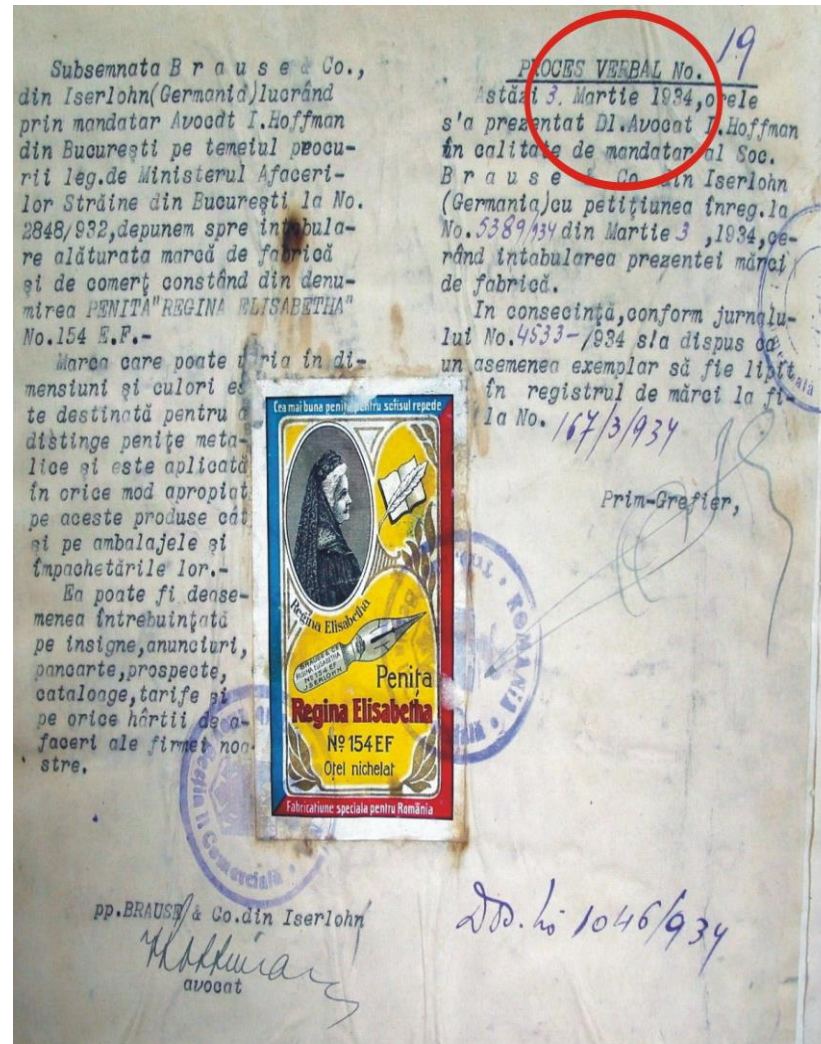 Subsemnata B r a u s e & Co.,
din Iserlohn(Germania)lucrând
prin mandatar Avocat I.Hoffman
din București pe temeiul procu-
rii leg.de Ministerul Afaceri-
lor Străine din București la No.
2848/932,depunem spre intabula-
re alăturata marcă de fabrică
și de comerț constând din denu-
mirea PENITA"REGINA ELISABETHA"
No.154 E.F.-
Marca care poate varia în di-
mensiuni și culori es-
te destinată pentru a
distinge penițe meta-
lice și este aplicată
în orice mod apropiat
pe aceste produse cât
și pe ambalajele și
împachetările lor.-
Ea poate fi dease-
menea întrebuințată
pe insigne,anunciuri,
pancarte,prospecte,
cataloage,tarife și
pe orice hârtii de a-
faceri ale firmei noa-
stre.
pp.BRAUSE & Co.din Iserlohn
avocat
19
PROCES VERBAL No.
Astăzi 3. Martie 1934,orele
s'a prezentat Dl.Avocat I.Hoffman
în calitate de mandatar al Soc.
B r a u s e & Co. din Iserlohn
(Germania)cu petițiunea înreg.la
No.5389/934 din Martie 3 ,1934,ce-
rând intabularea prezentei mărci
de fabrică.
In consecință,conform jurnalu-
lui No.4533-/934 s'a dispus ca
un asemenea exemplar să fie lipit
în registrul de mărci la fi-
la No. 167/3/934
Prim-Grefier,
1046/934
Cea mai buna penița pentru scrisul repede
Regina Elisabetha
BRAUSE & Co
REGINA ELISABETHA
Nº 154 EF
ISERLOHN
Penița
Regina Elisabetha
Nº 154 EF
Oțel nichelat
Fabricațiune speciala pentru România
ROMANIA
Secția II Comercială